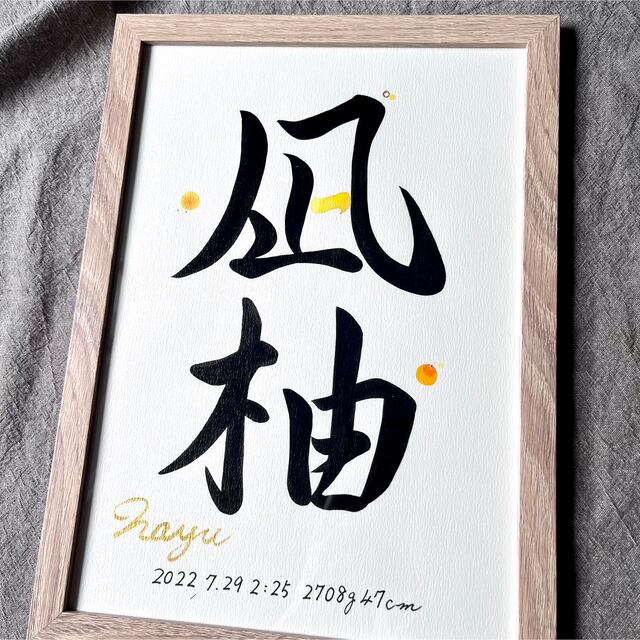 凪
柚
Nayu
2022 7.29 2:25 2708g 47cm